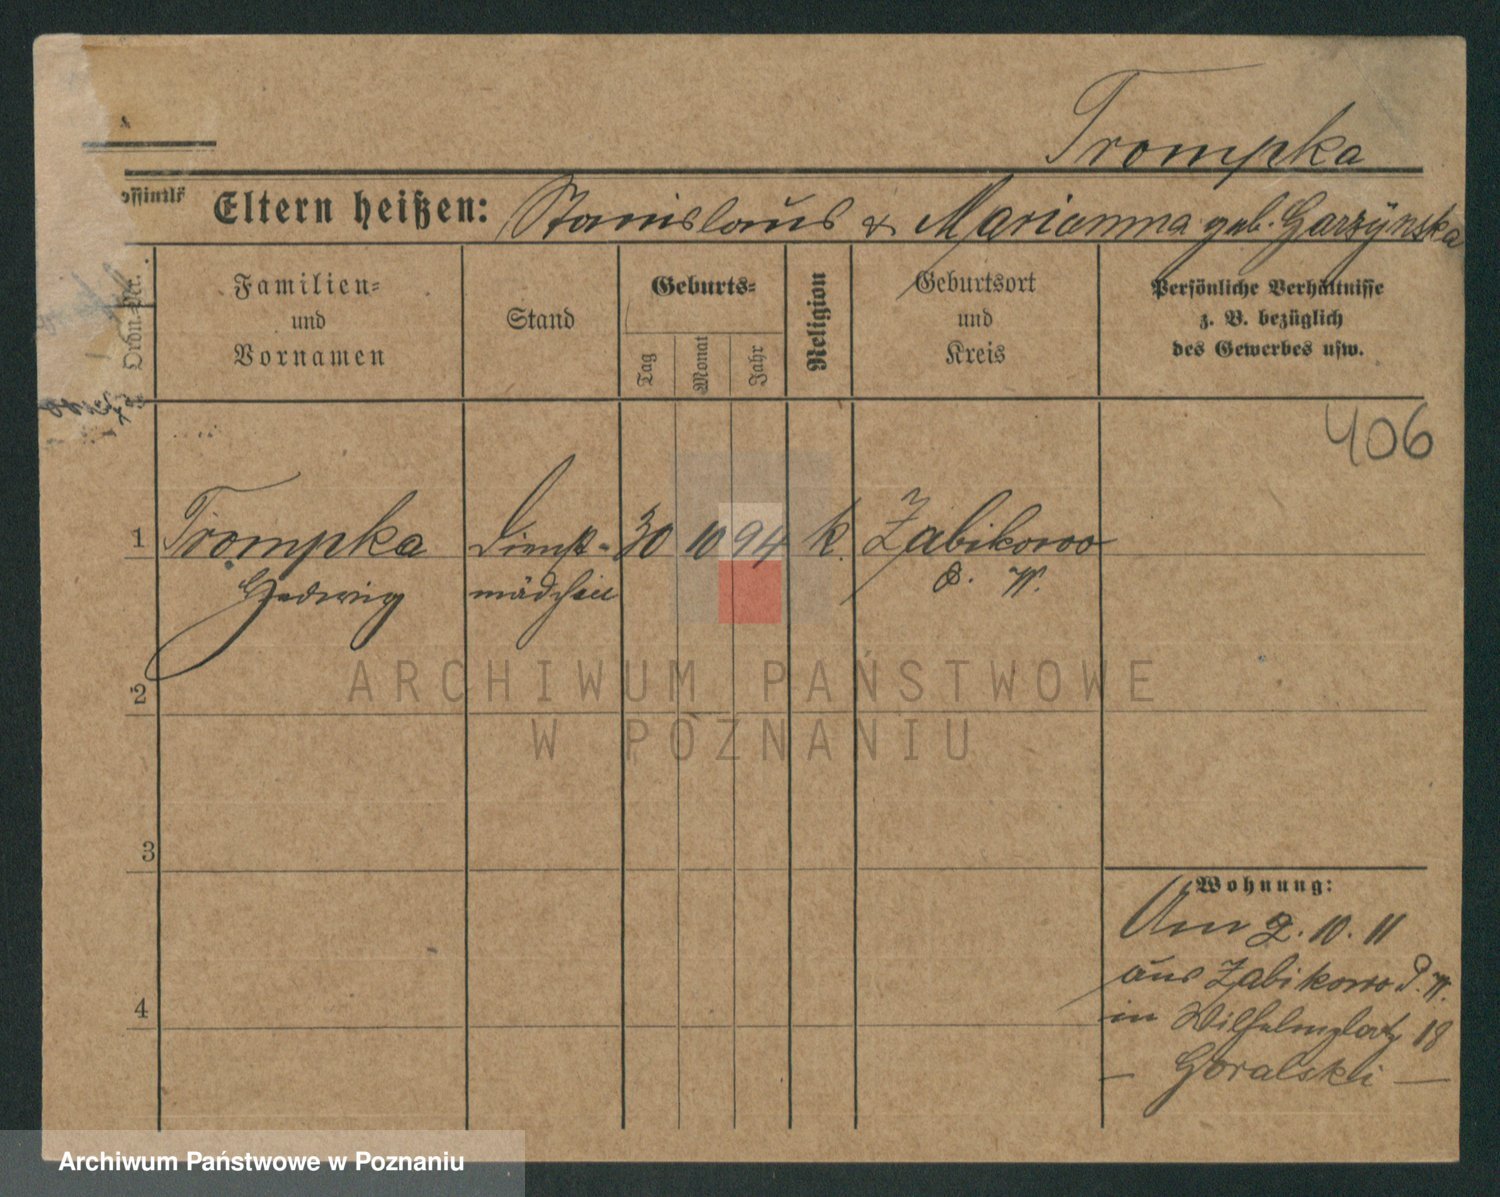 Trompka
Eltern heißen: Stanislaus & Marianna geb. Garzÿnska
Ordn.-Nr.
Familien-
und
Vornamen
Stand
Geburts-
Tag
Monat
Jahr
Religion
Geburtsort
und
Kreis
Persönliche Verhältnisse
z. B. bezüglich
des Gewerbes usw.
406
1 Trompka Dienst- 30 10 94 k. Zabikowo
Hedwig mädchen P. W.
2
3
4
Wohnung:
Am 2. 10. 11
aus Zabikowo P. W.
in Wilhelmplatz 18
— Goralski —
ARCHIWUM PAŃSTWOWE
W POZNANIU
Archiwum Państwowe w Poznaniu